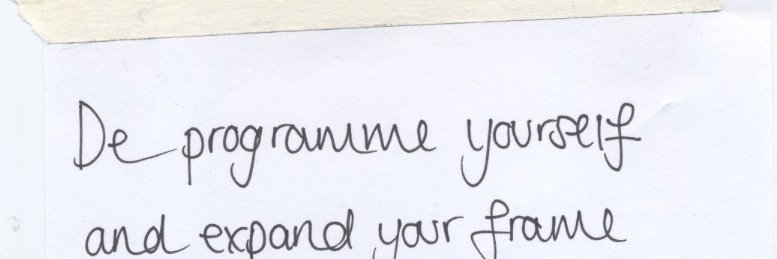 De programme yourself
and expand your frame